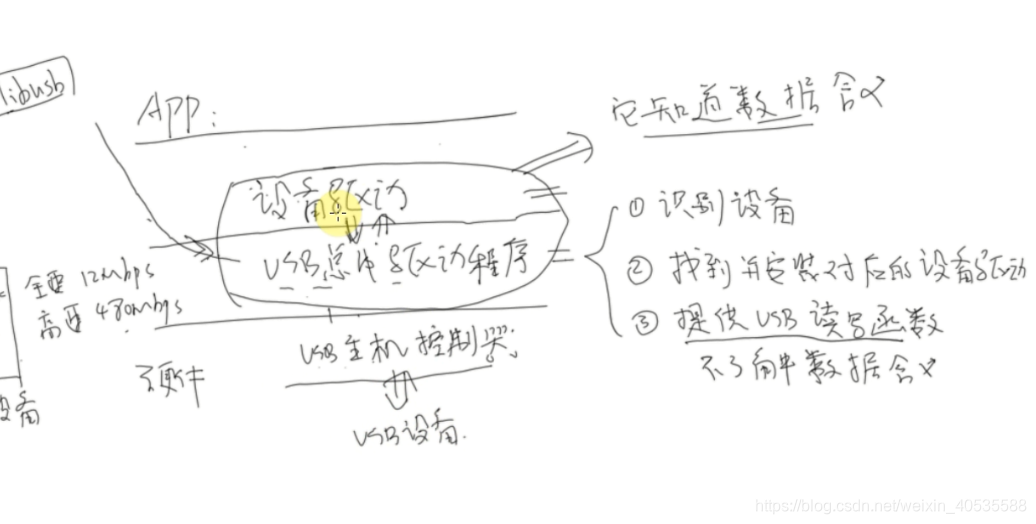 libusb
APP:
它知道数据含义
设备驱动
① 识别设备
USB总线驱动程序
② 找到并安装对应的设备驱动
全速 12mbps
高速 480mbps
③ 提供USB读写函数
不了解数据含义
USB主机控制器
硬件
设备
USB设备.
https://blog.csdn.net/weixin_40535588